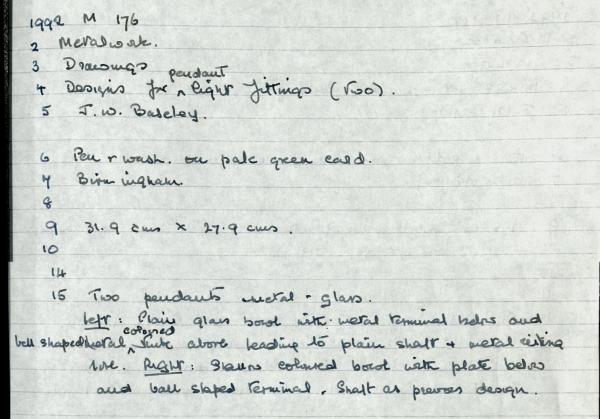 1992 M 176
2 Metalwork.
3 Drawings
pendant
4 Designs for ^ light fittings (two).
5 J.W. Baseley.
6 Pen & wash. on pale green card.
7 Birmingham.
8
9 31.9 cms × 27.9 cms.
10
14
15 Two pendants metal + glass.
Left: Plain glass bowl with metal terminal below and
coloured
bell shaped metal ^ above leading to plain shaft + metal ceiling
Right: coloured bowl with plate below
and ball shaped terminal. Shaft as previous design.